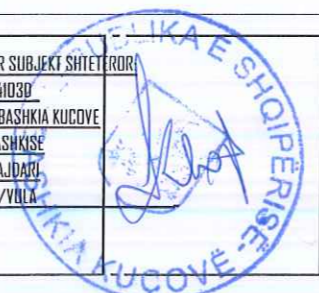 R SUBJEKT SHTETEROR
4103D
BASHKIA KUCOVE
ASHKISE
AJDARI
/VULA
REPUBLIKA E SHQIPËRISË
BASHKIA KUÇOVË